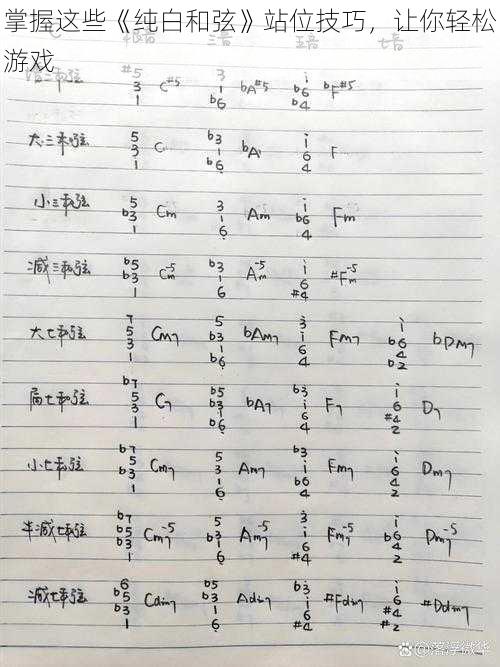 掌握这些《纯白和弦》站位技巧，让你轻松
游戏
三音 五音 七音
#5 3 1 C#5 3 1 b6 bA#5 i b6 b4 bF#5
大三和弦 5 3 1 C b3 1 b6 bA i 6 4 F
小三和弦 5 b3 1 Cm 3 1 6 Am i b6 4 Fm
减三和弦 b5 b3 1 Cm-5 b3 1 6 Am-5 i 6 #4 #Fm-5
大七和弦 7 5 3 1 Cm7 5 b3 1 b6 bAm7 3 i 6 4 Fm7 i b6 4 b2 bDm7
属七和弦 b7 5 3 1 C7 b5 b3 1 b6 bA7 b3 i 6 4 F7 i 6 #4 2 D7
小七和弦 b7 5 b3 1 Cm7 5 3 1 6 Am7 b3 i b6 4 Fm7 i 6 4 2 Dm7
半减七和弦 b7 b5 b3 1 Cm7-5 5 b3 1 6 Am7-5 3 i 6 #4 Fm7-5 i b6 4 2 Dm7-5
减七和弦 6 b5 b3 1 Cdim7 b5 b3 1 6 Adim7 b3 i 6 #4 #Fdim7 i 6 #4 #2 #Ddim7
@落浮微华